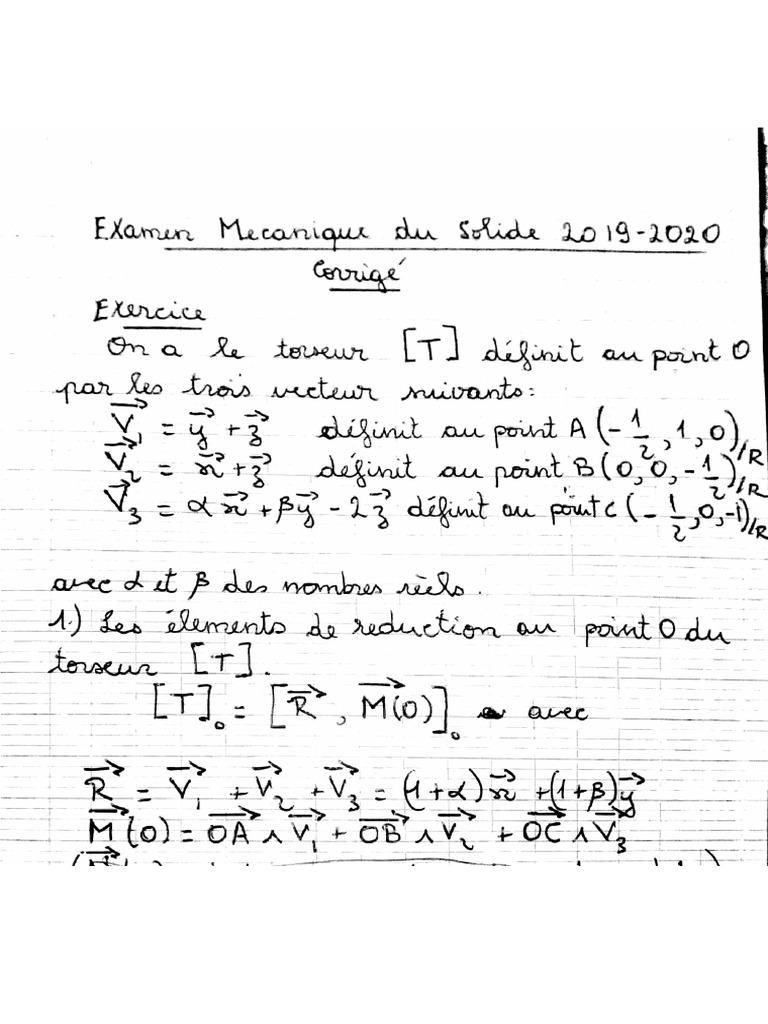 Examen Mecanique du Solide 2019-2020
Corrigé
Exercice
On a le torseur [T] définit au point O
par les trois vecteur suivants:
V⃗₁ = y⃗ + z⃗ définit au point A (-1/2, 1, 0)/R
V⃗₂ = x⃗ + z⃗ définit au point B (0, 0, -1/2)/R
V⃗₃ = αx⃗ + βy⃗ - 2z⃗ définit au point C (-1/2, 0, -1)/R
avec α et β des nombres réels.
1.) Les élements de reduction au point O du
torseur [T].
[T]₀ = [R⃗, M⃗(0)]₀ avec
R⃗ = V⃗₁ + V⃗₂ + V⃗₃ = (1+α)x⃗ + (1+β)y⃗
M⃗(0) = OA⃗ ∧ V⃗₁ + OB⃗ ∧ V⃗₂ + OC⃗ ∧ V⃗₃